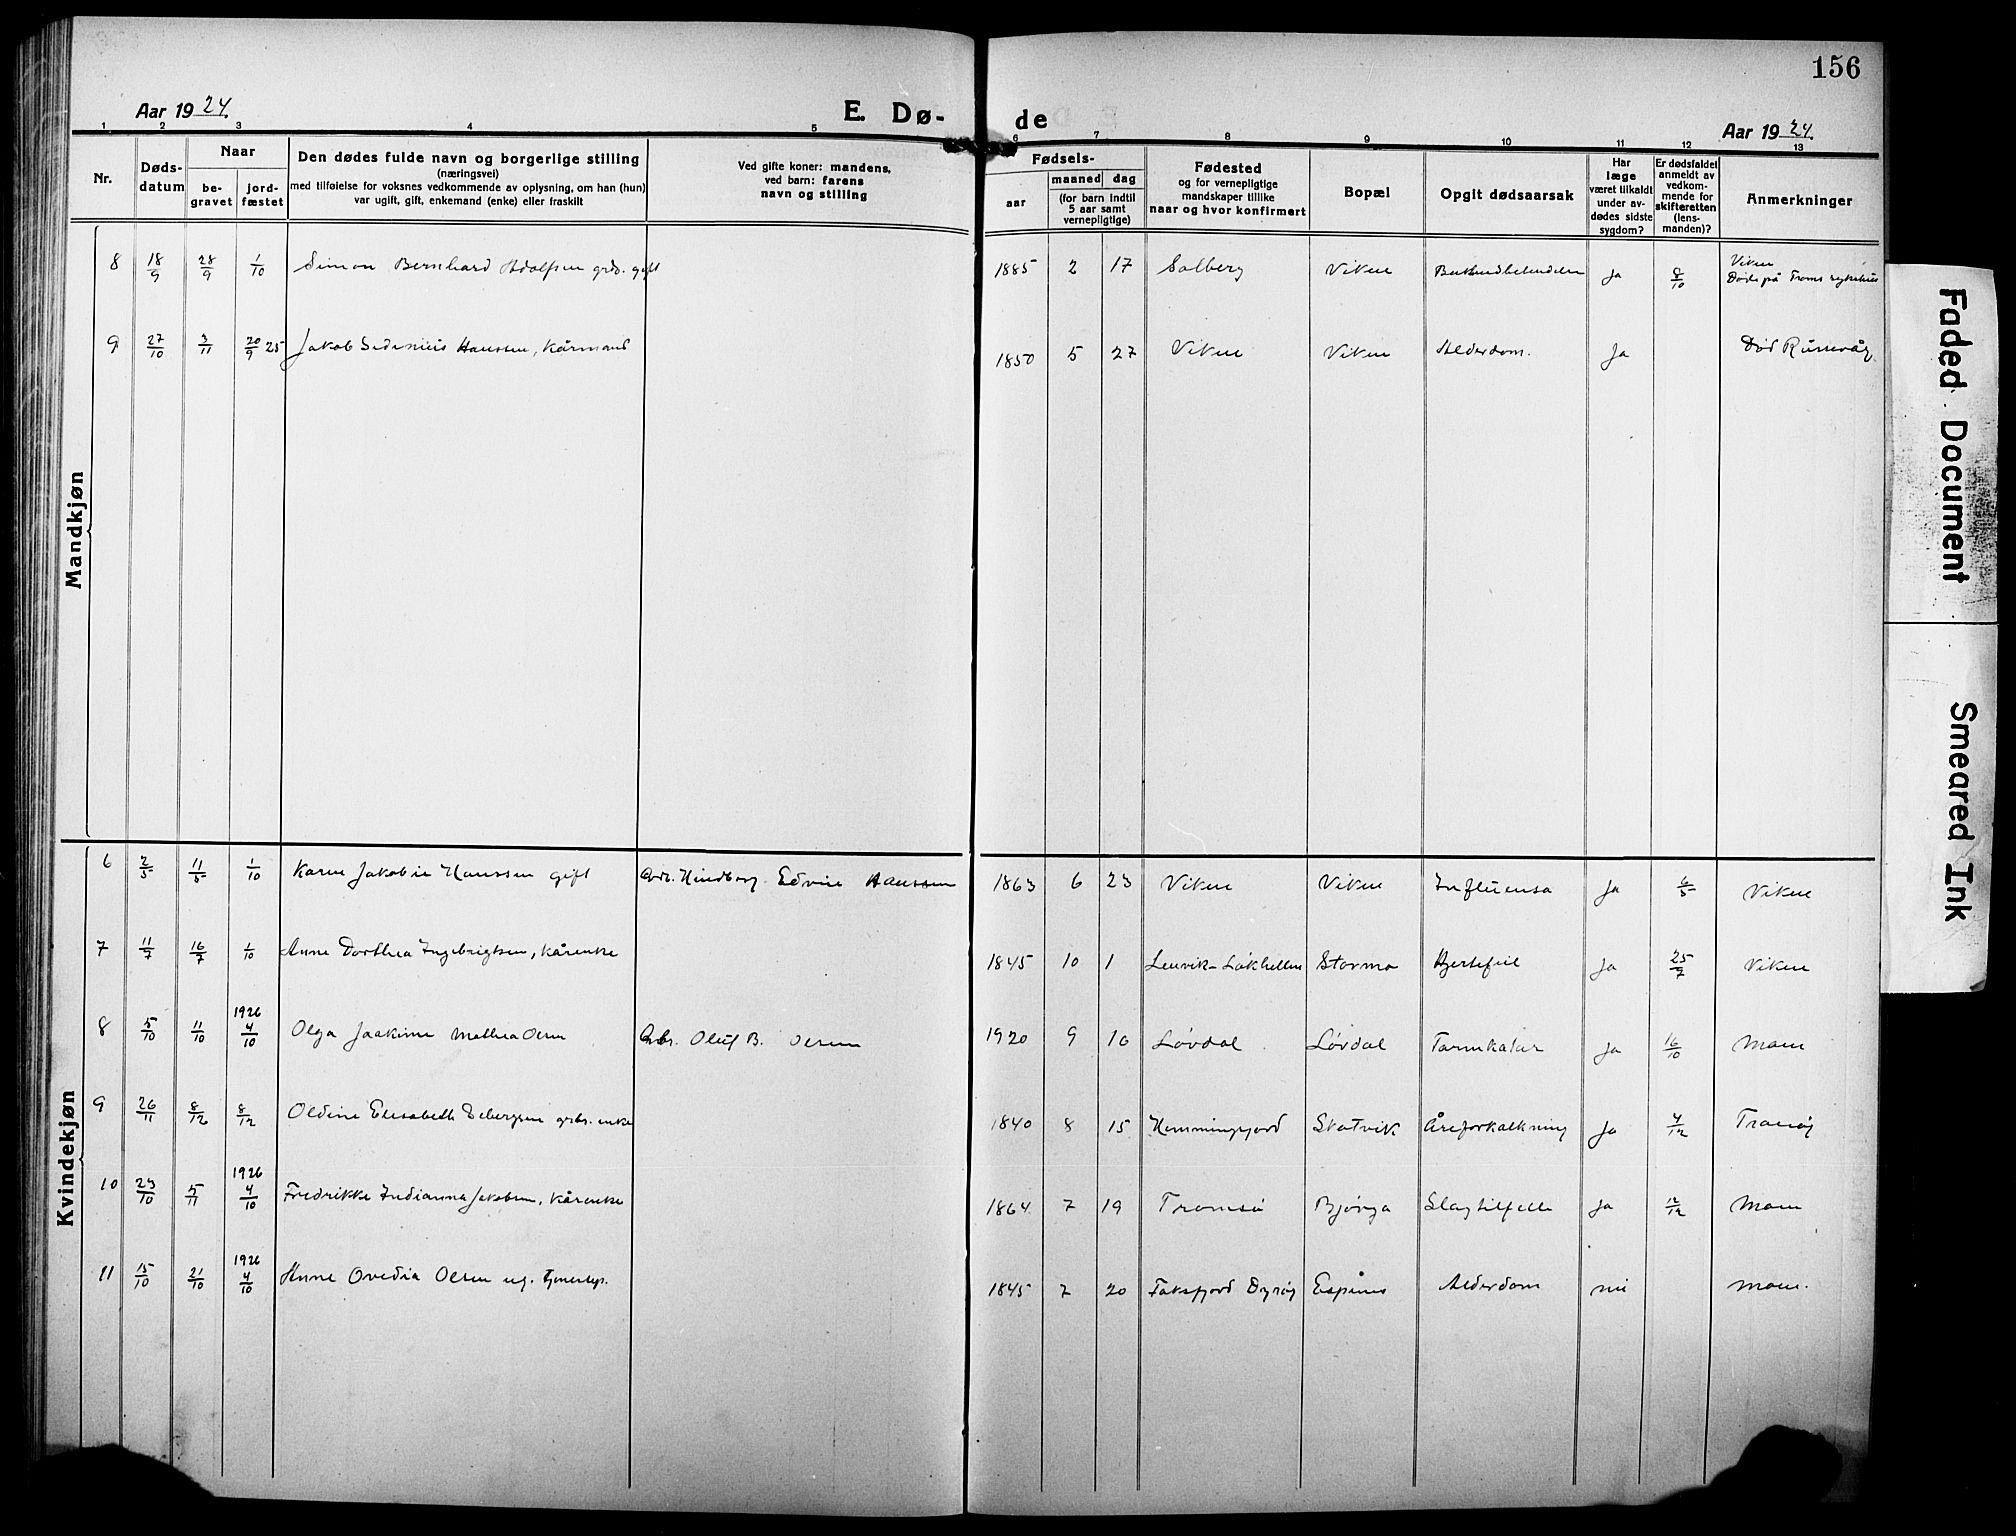 156
Aar 1924.
E. Dø-
de
Aar 1924.
1 2 3 4 5 6 7 8 9 10 11 12 13
Nr.
Døds-
datum
Naar
be-
gravet
jord-
fæstet
Den dødes fulde navn og borgerlige stilling
(næringsvei)
med tilføielse for voksnes vedkommende av oplysning, om han (hun)
var ugift, gift, enkemand (enke) eller fraskilt
Ved gifte koner: mandens,
ved barn: farens
navn og stilling
Fødsels-
aar
maaned dag
(for barn indtil
5 aar samt
vernepligtige)
Fødested
og for vernepligtige
mandskaper tillike
naar og hvor konfirmert
Bopæl
Opgit dødsaarsak
Har
læge
været tilkaldt
under av-
dødes sidste
sygdom?
Er dødsfaldet
anmeldt av
vedkom-
mende for
skifteretten
(lens-
manden)?
Anmerkninger
Mandkjøn
8 18/9 28/9 1/10 Simon Bernhard Adolfsen grb. gift 1885 2 17 Solberg Viken ja 8/10 Viken
Døde på Troms sykehus
9 27/10 3/11 20/9 25 Jakob Sedenius Hanssen, kårmand 1850 5 27 Viken Viken Alderdom. ja Død Russevåg
Kvindekjøn
6 2/5 11/5 1/10 Karen Jakobie Hanssen gift Hindberg Edvin Hanssen 1863 6 23 Viken Viken Influensa ja 6/5 Viken
7 11/7 16/7 1/10 Anne Dorthea Ingebrigtsen, kårenke 1845 10 1 Lenvik - Løkhellen Stormo Hjertefeil ja 25/7 Viken
8 5/10 11/10 1926 4/10 Olga Joakime Mathea Olsen Arb. Oluf B. Olsen 1920 9 16 Løvdal Løvdal Tarmkatar ja 16/10 Moen
9 26/11 8/12 8/12 Oldine Elisabeth Edbergsen grbr. enke 1840 8 15 Hemmingfjord Skatvik Åreforkalkning ja 4/12 Tranøy
10 23/10 5/11 1926 4/10 Fredrikke Indianna Jakobsen, kårenke 1864 7 19 Tromsø Bjørga Slagtilfelle ja 12/12 Moen
11 15/10 21/10 1926 4/10 Anne Ovedia Olsen ug. 1845 7 20 Faksfjord Dyrøy Espenes Alderdom nei Moen.
Faded Document
Smeared Ink